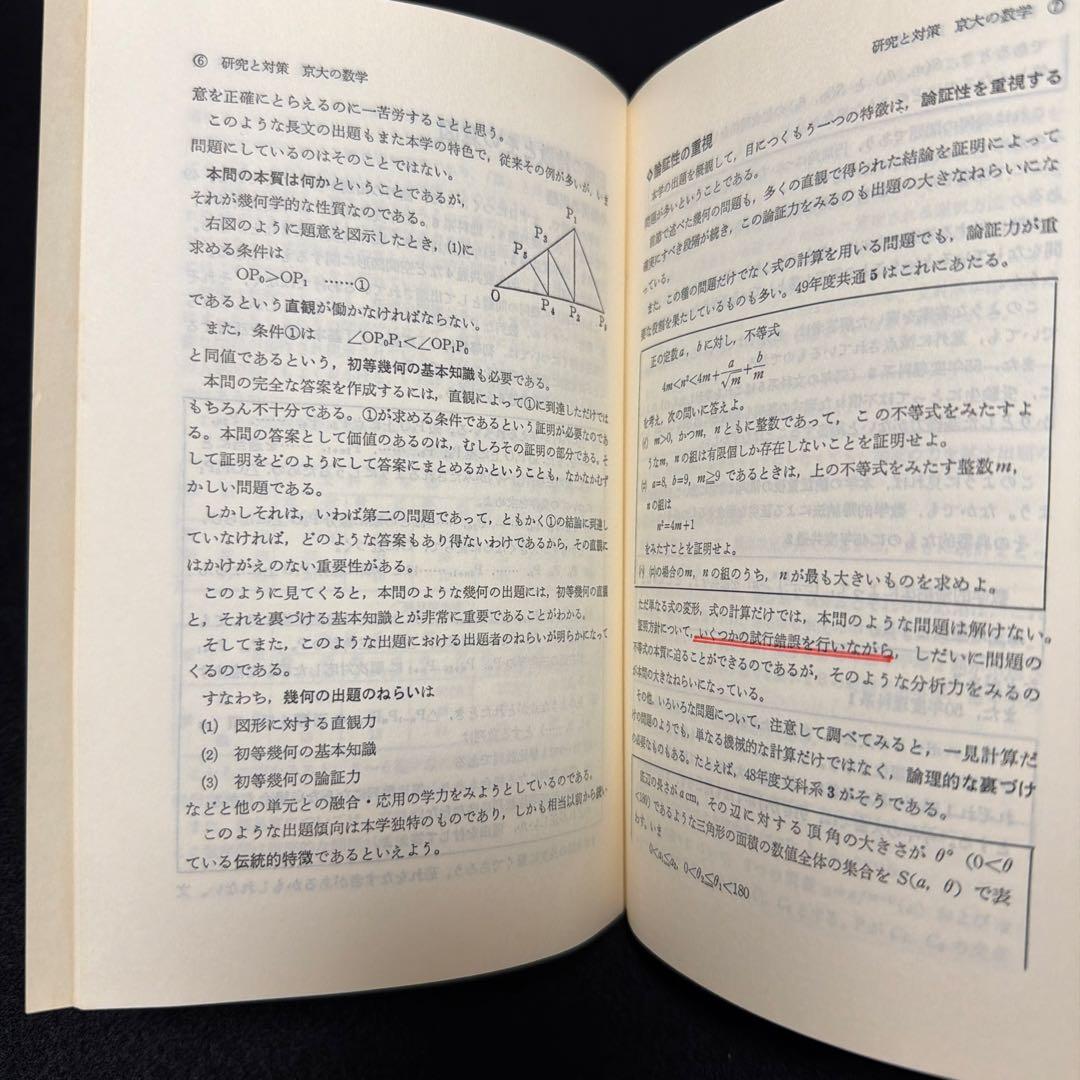 ⑥ 研究と対策 京大の数学
意を正確にとらえるのに一苦労することと思う。
このような長文の出題もまた本学の特色で，従来その例が多いが，いま
問題にしているのはそのことではない。
本問の本質は何かということであるが，
それが幾何学的な性質なのである。
右図のように題意を図示したとき，(1)に
求める条件は
OP₀>OP₁ ……①
であるという直観が働かなければならない。
また，条件①は ∠OP₀P₁<∠OP₁P₀
と同値であるという，初等幾何の基本知識も必要である。
本問の完全な答案を作成するには，直観によって①に到達しただけでは
もちろん不十分である。①が求める条件であるという証明が必要なのであ
る。本問の答案として価値のあるのは，むしろその証明の部分である。そ
して証明をどのようにして答案にまとめるかということも，なかなかむず
かしい問題である。
しかしそれは，いわば第二の問題であって，ともかく①の結論に到達し
ていなければ，どのような答案もあり得ないわけであるから，その直観に
はかけがえのない重要性がある。
このように見てくると，本問のような幾何の出題には，初等幾何の直観
と，それを裏づける基本知識とが非常に重要であることがわかる。
そしてまた，このような出題における出題者のねらいが明らかになって
くるのである。
すなわち，幾何の出題のねらいは
(1) 図形に対する直観力
(2) 初等幾何の基本知識
(3) 初等幾何の論証力
などと他の単元との融合・応用の学力をみようとしているのである。
このような出題傾向は本学独特のものであり，しかも相当以前から続い
ている伝統的特徴であるといえよう。
P₁
P₃
P₅
O
P₄
P₂
P₀
研究と対策 京大の数学 ⑦
◇論証性の重視
本学の出題を概観して，目につくもう一つの特徴は，論証性を重視する
問題が多いということである。
前節で述べた幾何の問題も，多くの直観で得られた結論を証明によって
確実にすべき段階が続き，この論証力をみるのも出題の大きなねらいにな
っている。
また，この種の問題だけでなく式の計算を用いる問題でも，論証力が重
要な役割を果たしているものも多い。49年度共通5はこれにあたる。
正の定数a，bに対し，不等式
4m<n²<4m+a/√m+b/m
を考え，次の問いに答えよ。
(イ) m>0，かつm，nともに整数であって，この不等式をみたすよ
うなm，nの組は有限個しか存在しないことを証明せよ。
(ロ) a=8，b=9，m≧9であるときは，上の不等式をみたす整数m，
nの組は
n²=4m+1
をみたすことを証明せよ。
(ハ) (ロ)の場合のm，nの組のうち，nが最も大きいものを求めよ。
ただ単なる式の変形，式の計算だけでは，本問のような問題は解けない。
証明方針について，いくつかの試行錯誤を行いながら，しだいに問題の
不等式の本質に迫ることができるのであるが，そのような分析力をみるの
が本問の大きなねらいになっている。
その他，いろいろな問題について，注意して調べてみると，一見計算だ
けの問題のようでも，単なる機械的な計算だけではなく，論理的な裏づけ
の必要なものもある。たとえば，48年度文科系3がそうである。
底辺の長さがa cm，その辺に対する頂角の大きさがθ°（0<θ
<180）であるような三角形の面積の数値全体の集合をS(a，θ)で表
わす。いま